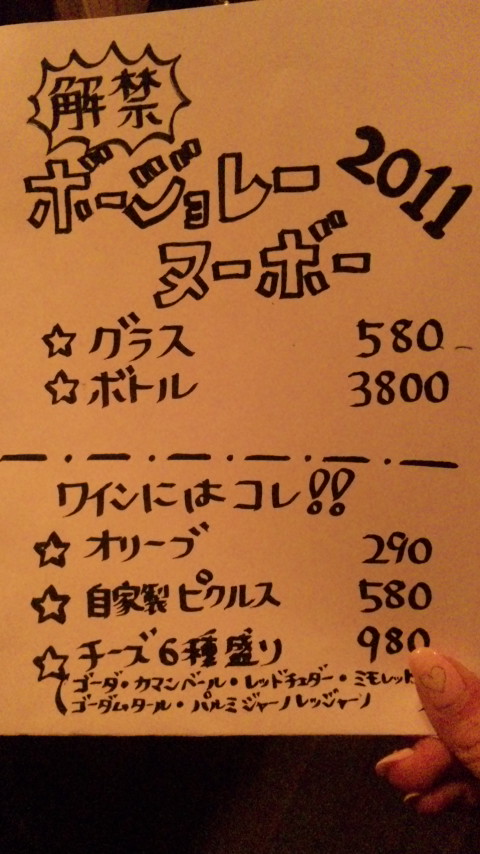 解禁
ボージョレー 2011
ヌーボー
☆グラス 580
☆ボトル 3800
ワインにはコレ!!
☆オリーブ 290
☆自家製ピクルス 580
☆チーズ6種盛り 980
(ゴーダ・カマンベール・レッドチェダー・ミモレット
ゴーダムタール・パルミジャーノレッジャーノ